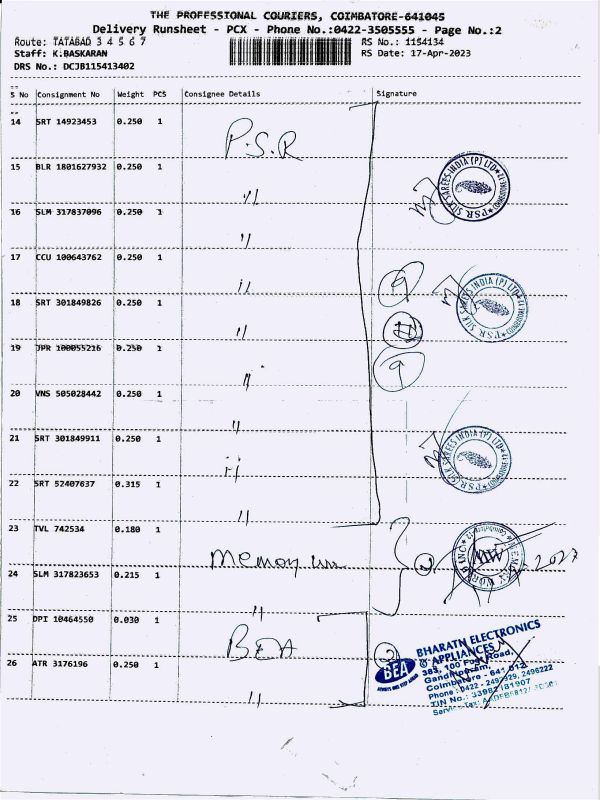 THE PROFESSIONAL COURIERS, COIMBATORE-641045
Delivery Runsheet - PCX - Phone No.:0422-3505555 - Page No.:2
Route: TATABAD 3 4 5 6 7
RS No.: 1154134
Staff: K.BASKARAN
RS Date: 17-Apr-2023
DRS No.: DCJB115413402
S No Consignment No Weight PCS Consignee Details Signature
14 SRT 14923453 0.250 1 P.S.R
15 BLR 1801627932 0.250 1 〃
16 SLM 317837096 0.250 1 〃
17 CCU 100643762 0.250 1 〃
18 SRT 301849826 0.250 1 〃
19 JPR 100055216 0.250 1 〃
20 VNS 505028442 0.250 1 〃
21 SRT 301849911 0.250 1 〃
22 SRT 52407637 0.315 1 〃
23 TVL 742534 0.180 1
24 SLM 317823653 0.215 1 〃
25 DPI 10464550 0.030 1 BEA
26 ATR 3176196 0.250 1 〃
PSR SILK SAREES INDIA (P) LTD
9
PSR SILK SAREES INDIA (P) LTD
11
9
PSR SILK SAREES INDIA (P) LTD
2
2
BEA
ALWAYS ONE STEP AHEAD
BHARATH ELECTRONICS
& APPLIANCES
100 Feet Road,
Gandhipuram,
Coimbatore - 641 012
Phone : 0422 -
TIN No.: